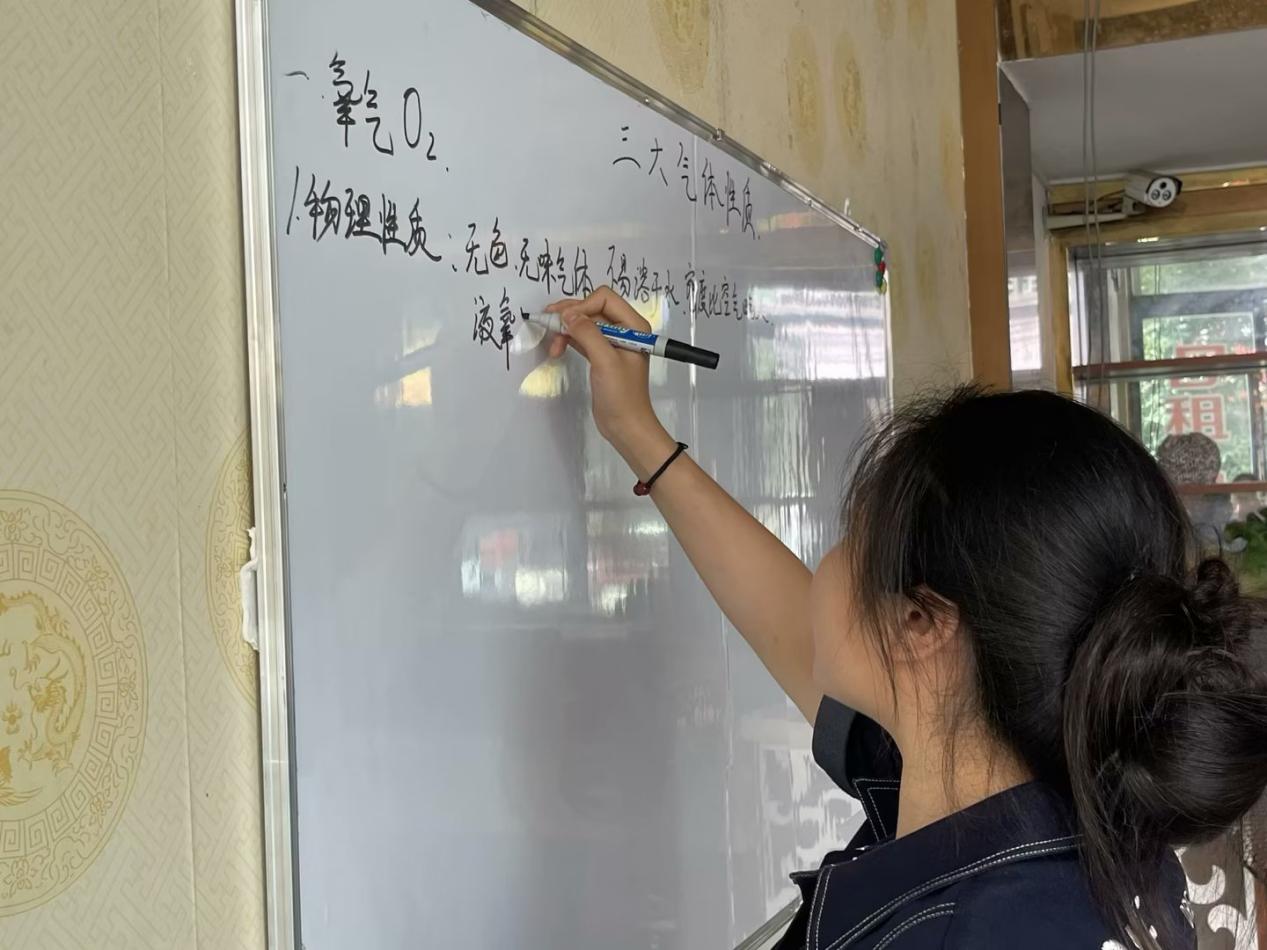 三大气体性质.
一.氧气O₂.
1.物理性质:无色.无味气体.不易溶于水.密度比空气略大.
液氧
租